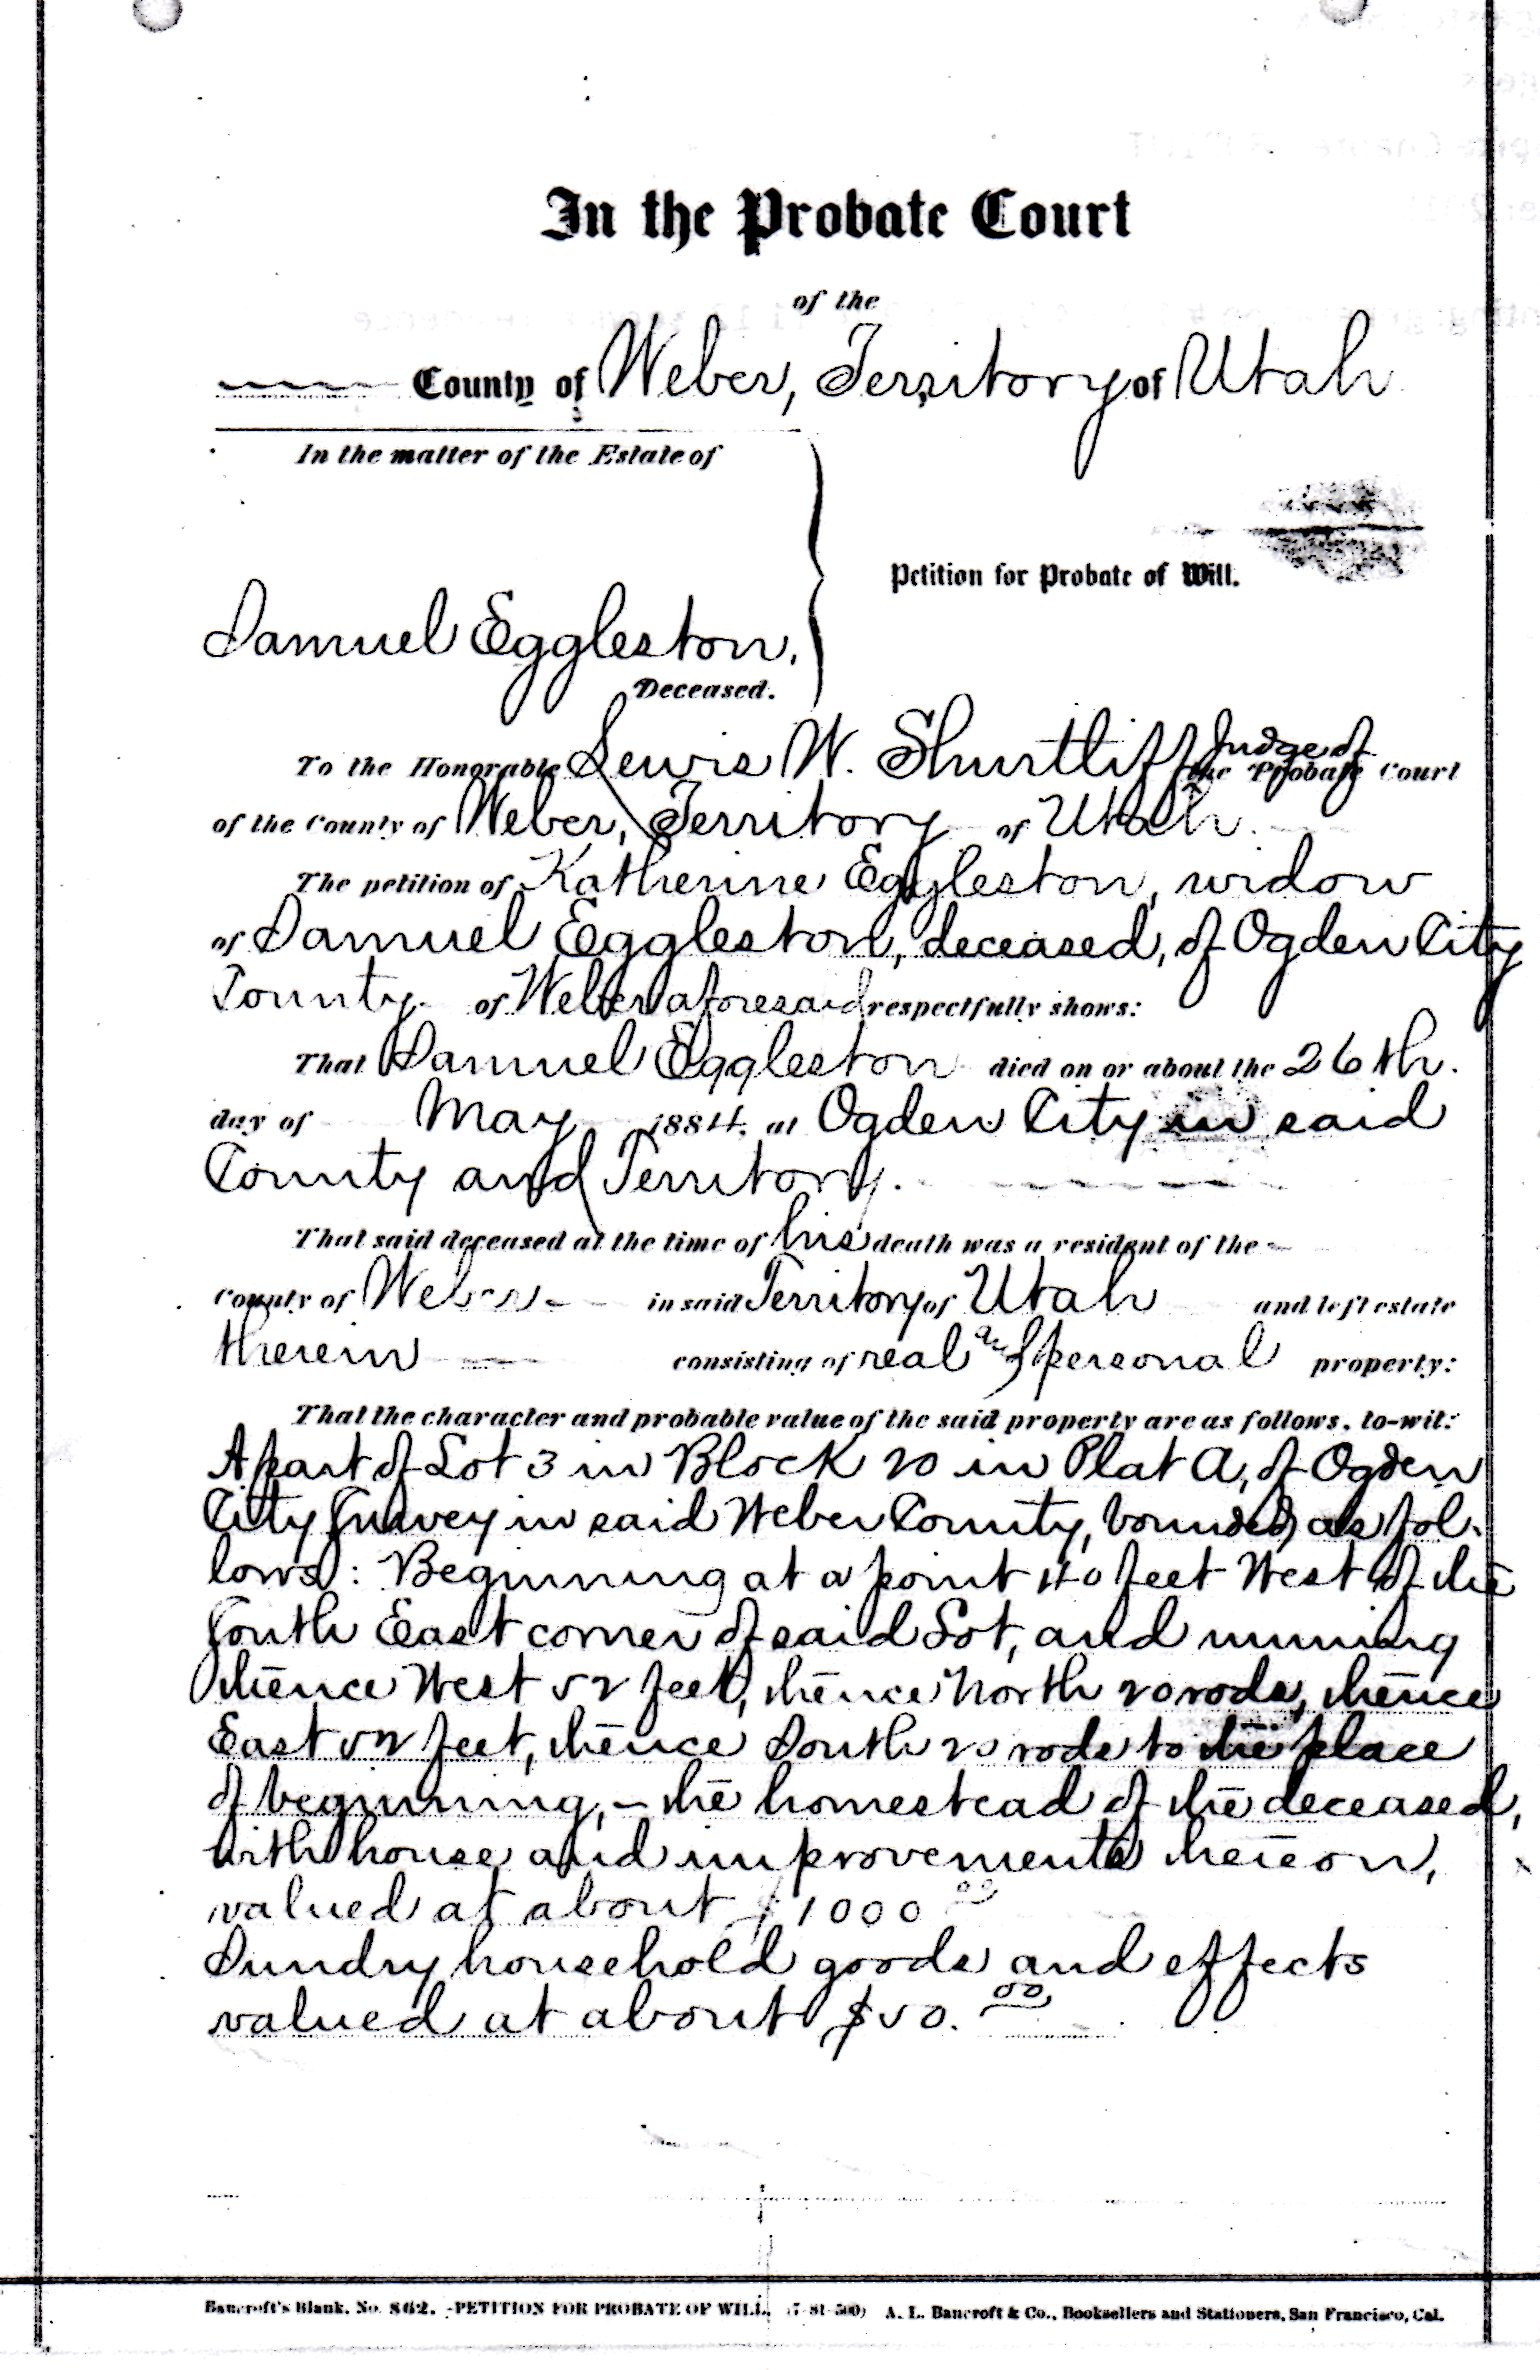 In the Probate Court
of the
County of Weber, Territory of Utah
In the matter of the Estate of
Petition for Probate of Will.
Samuel Eggleston,
Deceased.
To the Honorable Lewis W. Shurtliff Judge of the Probate Court
of the County of Weber, Territory of Utah.
The petition of Katherine Eggleston, widow
of Samuel Eggleston, deceased, of Ogden City
County of Weber aforesaid respectfully shows:
That Samuel Eggleston died on or about the 26th.
day of May 1884, at Ogden City in said
County and Territory.
That said deceased at the time of his death was a resident of the
County of Weber in said Territory of Utah and left estate
therein consisting of real and personal property:
That the character and probable value of the said property are as follows, to-wit:
A part of Lot 3 in Block 20 in Plat A, of Ogden
City Survey in said Weber County, bounded as fol-
lows: Beginning at a point 140 feet West of the
South East corner of said Lot, and running
thence West 52 feet, thence North 20 rods, thence
East 52 feet, thence South 20 rods to the place
of beginning, – the homestead of the deceased,
with house and improvements thereon,
valued at about $1000 00
Sundry household goods and effects
valued at about $50. 00
Bancroft's Blank, No. 862. -PETITION FOR PROBATE OF WILL. (7-81-500) A. L. Bancroft & Co., Booksellers and Stationers, San Francisco, Cal.